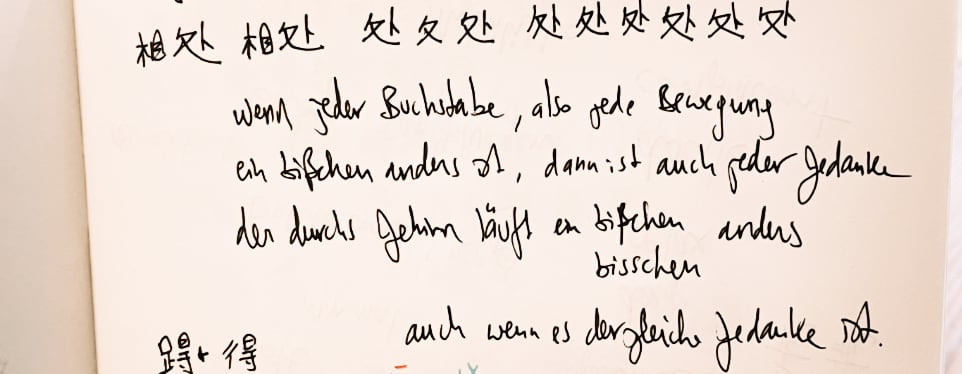 相处 相处 处 夂 处 处 处 处 处 处 处
wenn jeder Buchstabe, also jede Bewegung
ein bißchen anders ist, dann ist auch jeder Gedanke
der durchs Gehirn läuft ein bißchen anders
bisschen
auch wenn es der gleiche Gedanke ist.
得